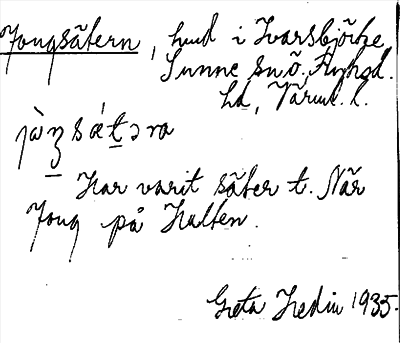 Jongsätern, hmd i Ivarsbjörke,
Sunne snö. Fryksd.
hd, Värml. l.
Har varit säter t. När
Jong på Kulten.
Greta Hedin 1935.